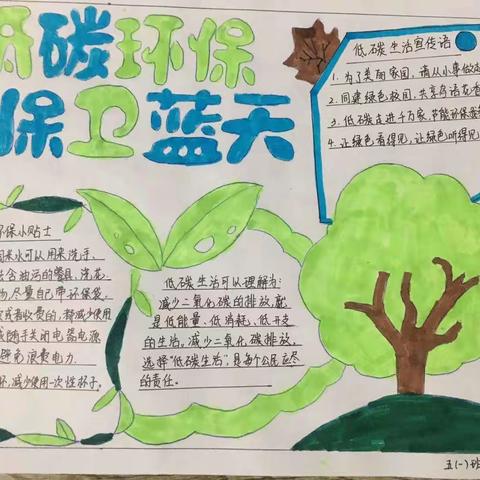 碳环保
保卫蓝天
低碳生活宣传语
1. 为了美丽家园，请从小事做起
2. 同建绿色校园，共享鸟语花香
3. 低碳走进千万家，节能环保
4. 让绿色看得见，让绿色听得见
环保小贴士
水可以用来洗手、
含油污的餐具，浇花
尽量自己带环保袋
减少使用
随手关闭电器电源
避免浪费电力
减少使用一次性杯子。
低碳生活可以理解为：
减少二氧化碳的排放，就
是低能量、低消耗、低开支
的生活，减少二氧化碳排放，
选择"低碳生活"，是每个公民应尽
的责任。
五(一)班